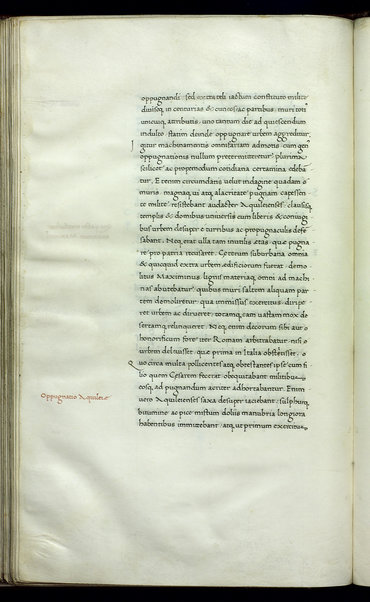 oppugnandi. sed extra teli iactum constituto milite
diuisoq; in centurias & cuneos ac partibus muri toti
unicuiq; attributis. uno tantum die ad quiescendum
indulto statim deinde oppugnare urbem aggreditur.
Igitur machinamentis omnifariam admotis cum gen
oppugnationis nullum pretermitteretur: plurima
scilicet ac propemodum cotidiana certamina edeba
tur. Etenim circundatis uelut indagine quadam
muris. magnaq; ui atq; alacritate pugnam capessen
te milite. resistebant audacter Aquileienses. clausisq;
templis & domibus uniuersi cum liberis & coniugi
bus urbem desuper e turribus ac propugnaculis defe
sabant. Neq; erat ulla tam inutilis etas. que pugna
re pro patria recusaret. Ceterum suburbana omnia
& quicquid extra urbem edificiorum fuerat. demo
litus Maximinus lignis materiaq; omni ad machi
nas abutebatur. quibus muri saltem aliquam par
tem demoliretur. qua immissus exercitus diripe
ret urbem ac dirueret. totamq; eam uastam mox de
sertamq; relinqueret. Neq; enim decorum sibi aut
honorificum fore iter Romam arbitrabatur. nisi
urbem deleuisset. que prima in Italia obstitisset.
Quocirca multa pollicentes atq; obtestantes ipse cum fi
lio quem Cesarem fecerat obequitabant militibus
eosq; ad pugnandum acriter adhortabantur. Enim
uero Aquileienses saxa desuper iaciebant. sulphurq;
bitumine ac pice mistum doliis manubria longiora
habentibus immittebant. atq; ut primum exercitus
Oppugnatio Aquileie